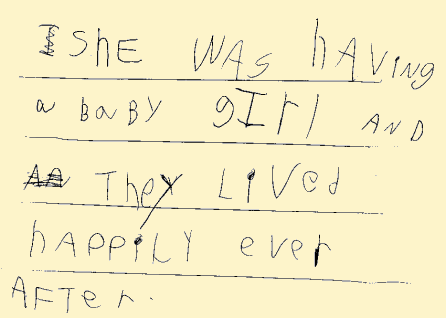 ShE WAS hAVING
a BaBY gIrl AND
They LIVed
hAPPiLY ever
AFTer.